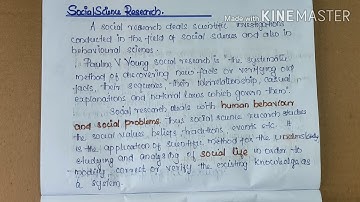 Social Science Research.
Made with KINEMASTER
A social research deals scientific investigations
conducted in the field of social sciences and also in
behavioural sciences.
Pauline V Young social research is "the systematic
method of discovering new facts or verifying old
facts, their sequences, their interrelationship, causal
explanations and natural laws which govern them".
Social research deals with human behaviour
and social problems. Thus social science research studies
the social values, beliefs, traditions, events etc. It
is the application of scientific method for the understanding
studying and analysing of social life in order to
modify, correct or verify the existing knowledge as
a system.